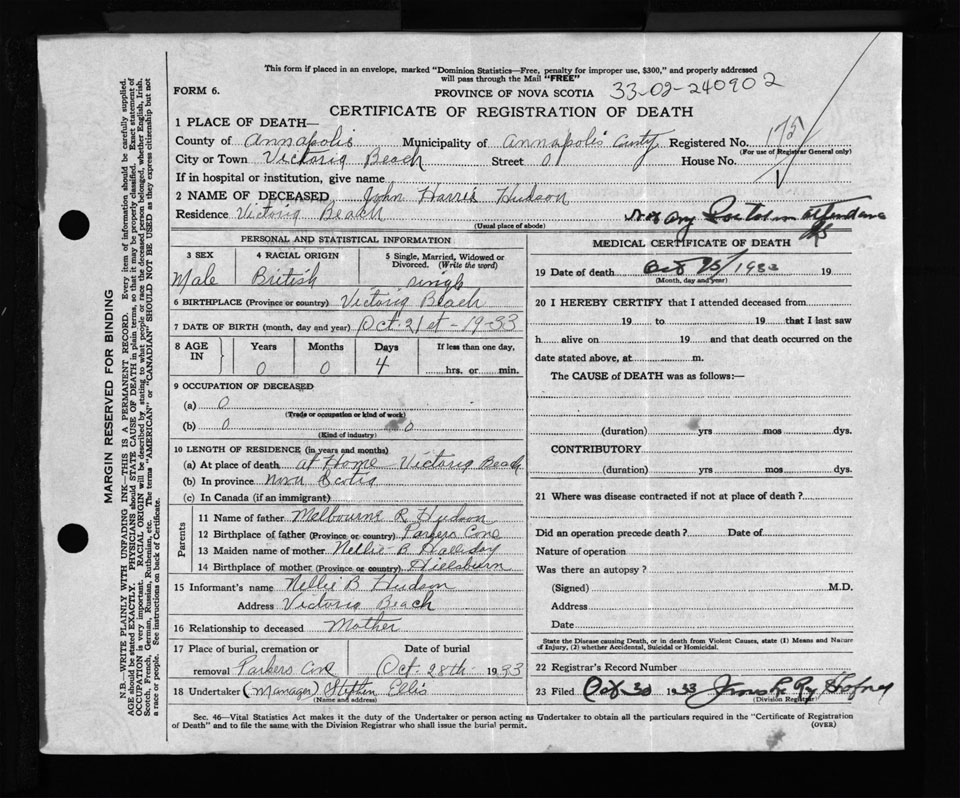 This form if placed in an envelope, marked "Dominion Statistics—Free, penalty for improper use, $300," and properly addressed
will pass through the Mail "FREE"
FORM 6.
PROVINCE OF NOVA SCOTIA
33-02-240902
CERTIFICATE OF REGISTRATION OF DEATH
1 PLACE OF DEATH—
County of Annapolis Municipality of Annapolis County Registered No. 175
(For use of Registrar General only)
City or Town Victoria Beach Street 0 House No.
If in hospital or institution, give name
2 NAME OF DECEASED John Harris Hudson
Residence Victoria Beach
(Usual place of abode)
Not any Doctor in attendance
PERSONAL AND STATISTICAL INFORMATION
3 SEX
Male
4 RACIAL ORIGIN
British
5 Single, Married, Widowed or
Divorced. (Write the word)
single
6 BIRTHPLACE (Province or country) Victoria Beach
7 DATE OF BIRTH (month, day and year) Oct. 21st - 1933
8 AGE IN Years Months Days If less than one day,
0 0 4 hrs. or min.
9 OCCUPATION OF DECEASED
(a) 0
(Trade or occupation or kind of work)
(b) 0 0
(Kind of industry)
10 LENGTH OF RESIDENCE (in years and months)
(a) At place of death at Home Victoria Beach
(b) In province Nova Scotia
(c) In Canada (if an immigrant)
Parents
11 Name of father Melbourne R. Hudson
12 Birthplace of father (Province or country) Parkers Cove
13 Maiden name of mother Nellie B Halliday
14 Birthplace of mother (Province or country) Hillsburn
15 Informant's name Nellie B Hudson
Address Victoria Beach
16 Relationship to deceased Mother
17 Place of burial, cremation or
removal Parkers Cove
Date of burial
Oct. 28th 1933
18 Undertaker (Manager) Stephen Ellis
(Name and address)
MEDICAL CERTIFICATE OF DEATH
19 Date of death Oct 25/1933 19
(Month, day and year)
20 I HEREBY CERTIFY that I attended deceased from
19 to 19 that I last saw
h alive on 19 and that death occurred on the
date stated above, at m.
The CAUSE of DEATH was as follows:—
(duration) yrs mos dys.
CONTRIBUTORY
(duration) yrs mos dys.
21 Where was disease contracted if not at place of death?
Did an operation precede death? Date of
Nature of operation
Was there an autopsy?
(Signed) M.D.
Address
Date
State the Disease causing Death, or in death from Violent Causes, state (1) Means and Nature
of Injury, (2) whether Accidental, Suicidal or Homicidal.
22 Registrar's Record Number
23 Filed Oct 30 1933
(Division Registrar)
Sec. 46—Vital Statistics Act makes it the duty of the Undertaker or person acting as Undertaker to obtain all the particulars required in the "Certificate of Registration
of Death" and to file the same with the Division Registrar who shall issue the burial permit.
(OVER)
MARGIN RESERVED FOR BINDING
N.B.—WRITE PLAINLY WITH UNFADING INK—THIS IS A PERMANENT RECORD. Every item of information should be carefully supplied.
AGE should be stated EXACTLY. PHYSICIANS should STATE CAUSE OF DEATH in plain terms, so that it may be properly classified. Exact statement of
OCCUPATION is very important. RACIAL ORIGIN will be described by stating to what people or race the deceased person belonged, whether English, Irish,
Scotch, French, German, Russian, Ruthenian, etc. The terms "AMERICAN" or "CANADIAN" SHOULD NOT BE USED as they express citizenship but not
a race or people. See instructions on back of Certificate.